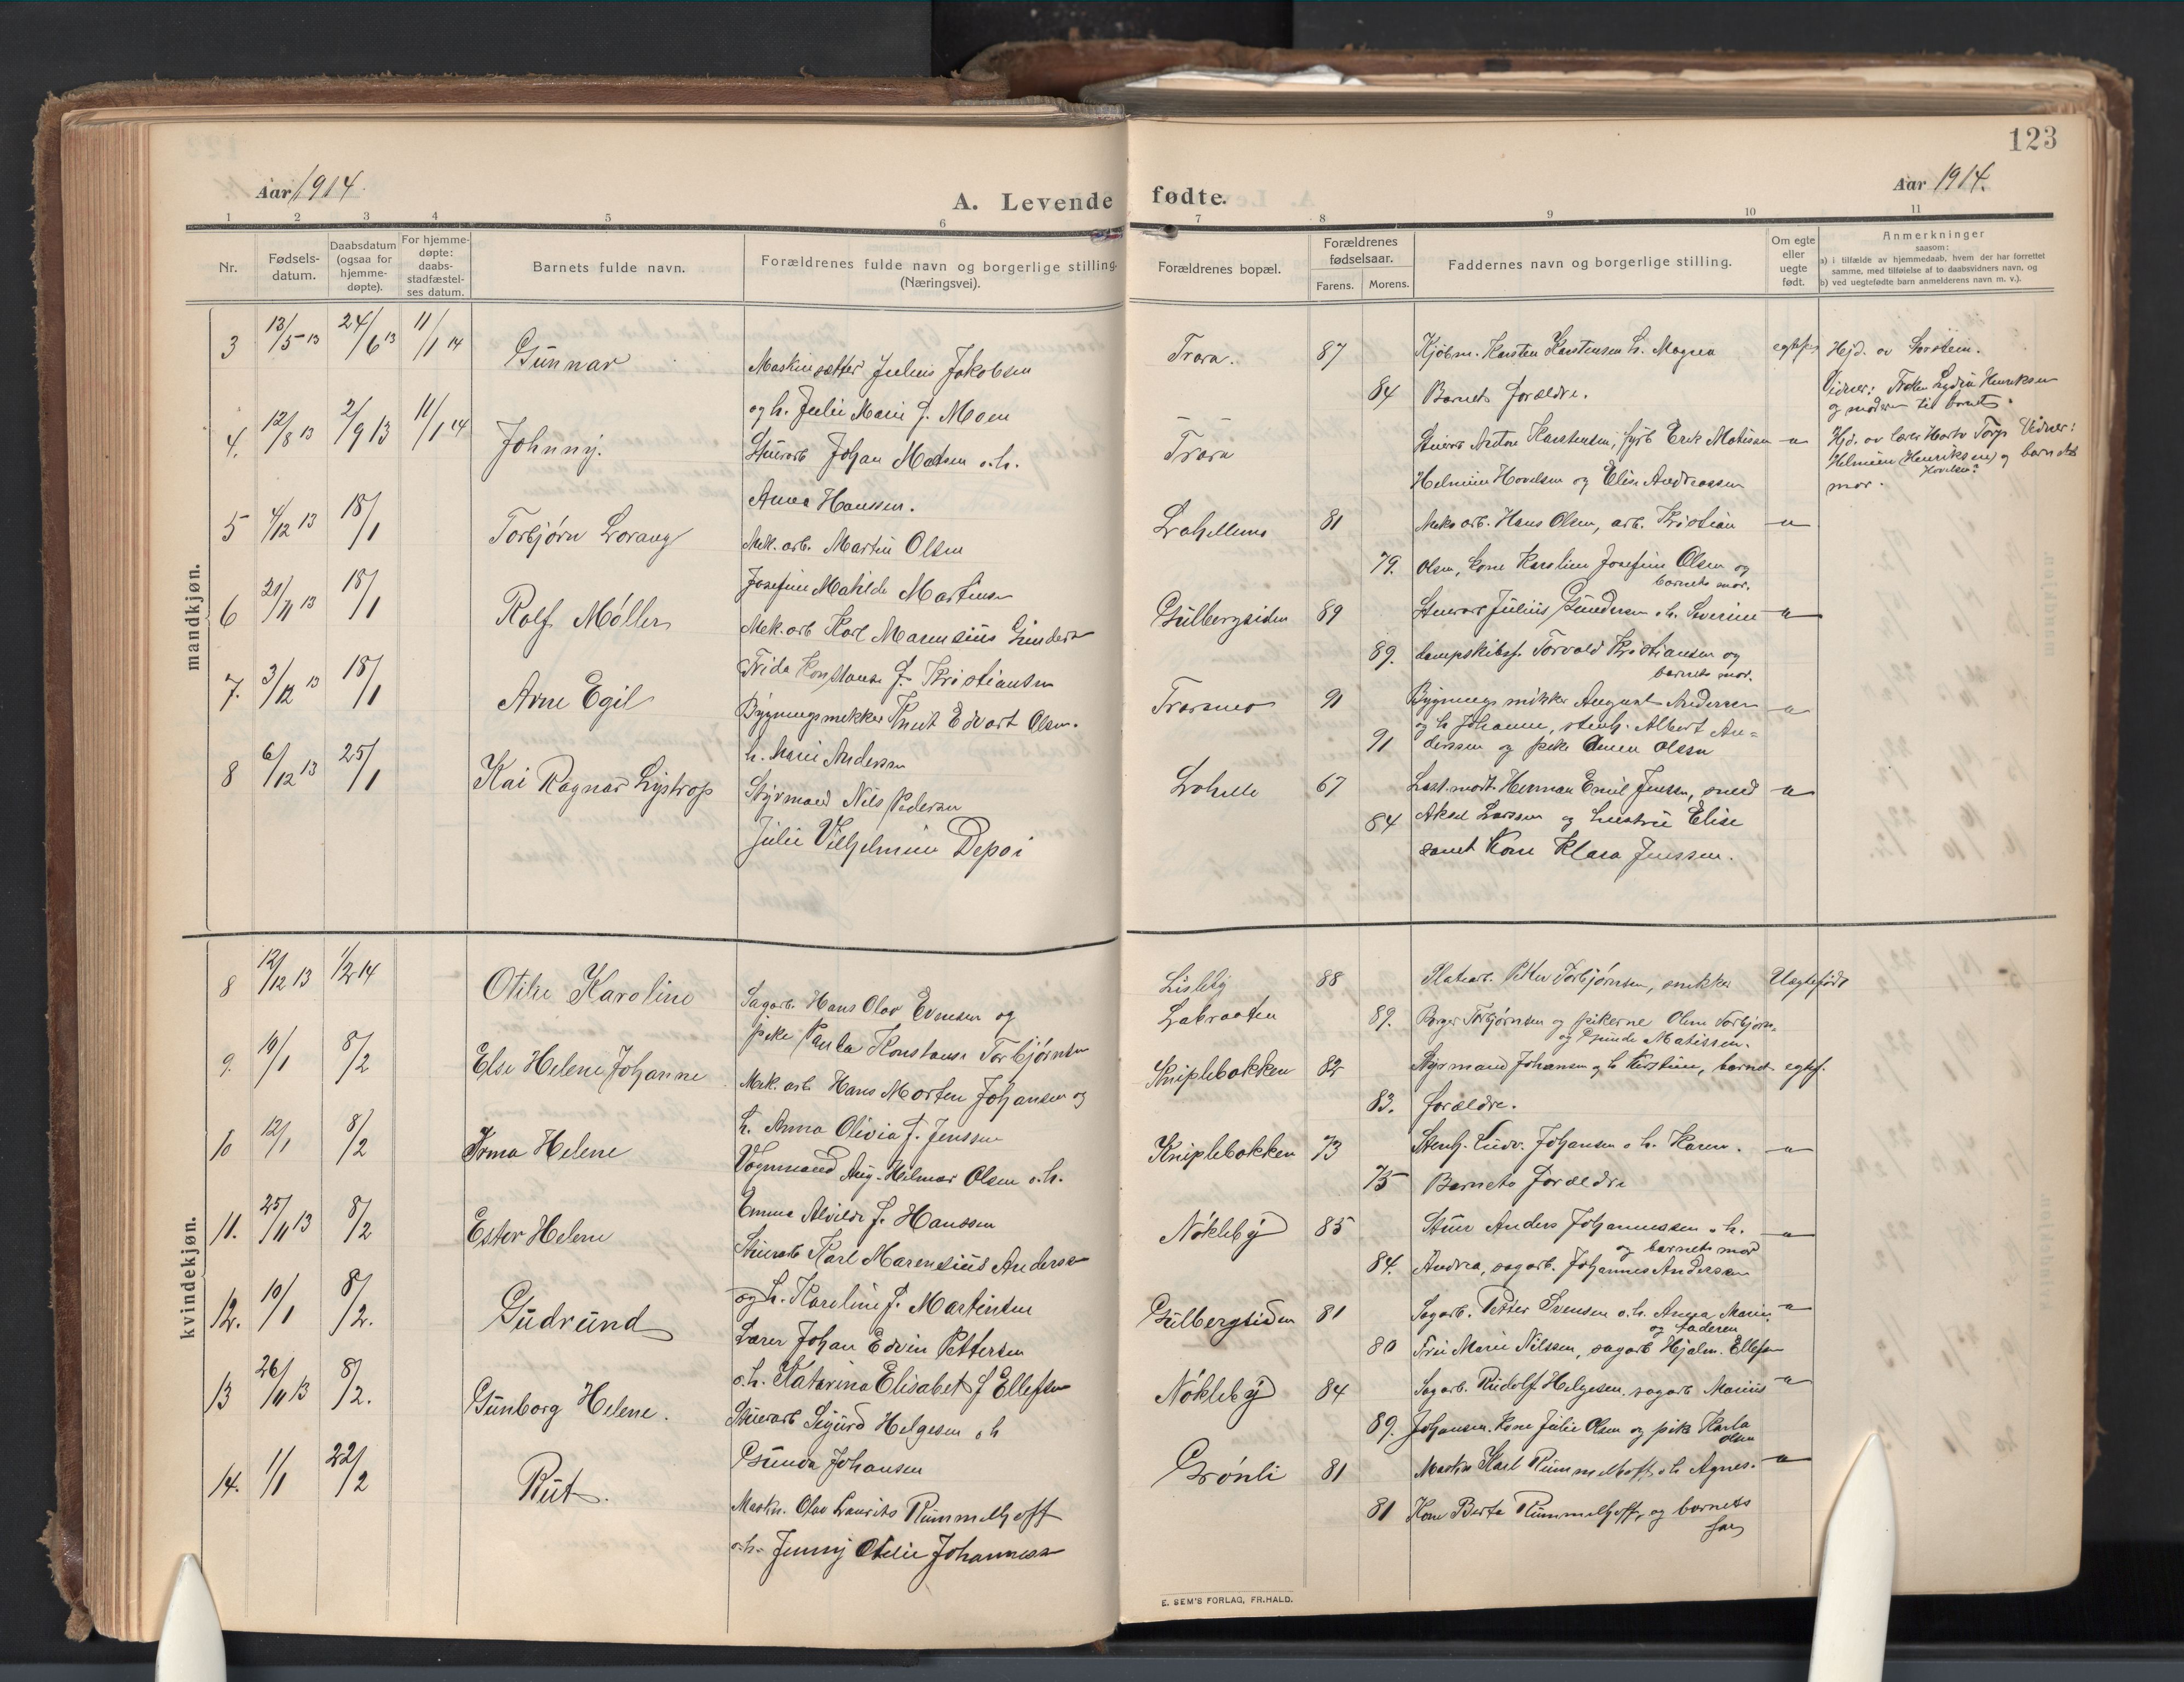 123
Aar 1914.
A. Levende fødte.
Aar 1914.
1 2 3 4 5 6 7 8 9 10 11
Nr.
Fødsels-
datum.
Daabsdatum
(ogsaa for
hjemme-
døpte).
For hjemme-
døpte:
daabs-
stadfæstel-
ses datum.
Barnets fulde navn.
Forældrenes fulde navn og borgerlige stilling.
(Næringsvei).
Forældrenes bopæl.
Forældrenes
fødselsaar.
Farens. Morens.
Faddernes navn og borgerlige stilling.
Om egte
eller
uegte
født.
Anmerkninger
saasom:
a) i tilfælde av hjemmedaab, hvem der har forrettet
samme, med tilføielse af to daabsvidners navn, og
b) ved uegtefødte barn anmelderens navn m. v.).
mandkjøn.
3 13/5 13 24/6 13 11/1 14 Gunnar Maskinsætter Julius Jakobsen Trara. 87 Kjøbm. Karsten Karstensen h. Magna egtef. Hjd. av
og h. Julie Marie f. Moen 84 Barnets forældre. Vidner: Frøken Lydia Henriksen
og moderen til barnet.
4. 12/8 13 2/9 13 11/1 14 Johnny. Stuerarb Johan Madsen o.h. Trara Stuerarb Anton Karstensen, fyrb Erik Matissen - " - Hjd. av lærer Torp Vidner:
Anna Hanssen. Helmine Hovelsen og Elise Andreassen Helmine (Henriksen) og barnets
Hovelsen?
mor.
5 4/12 13 18/1 Torbjørn Lorang Mek. arb. Martin Olsen Lahellemo 81 Meks arb. Hans Olsen, arb. Kristian - " -
Josefine Matilde Martinsen 79. Olsen, kone Karoline Josefine Olsen og
barnets mor.
6 21/11 13 18/1 Rolf Møller Mek. arb Karl Marensius Gunders Gulbergsiden 89 Stuerarb Julius Gundersen o.h. Severine - " -
Frida Konstanse f. Kristiansen 89. dampskibsf. Torvald Kristiansen og
barnets mor.
7. 3/12 13 18/1 Arne Egil Bygningsnekker Knut Edvart Olsen. Traramo 91 Bygningssnikker August Andersen - " -
h. Marie Andersen 91 og h Johanne, stenh. Albert An=
derssen og pike Olsen
8 6/12 13 25/1 Kai Ragnar Lystrop Styrmand Nils Pedersen Lahelle 67 Last.modt. Herman Emil Jenssen, smed - " -
Julie Vilhelmine Depoi 84 Aksel Larssen og hustru Elise
samt Kone Klara Jenssen.
kvindekjøn.
8 12/12 13 1/2 14 Otilie Karoline Sagarb. Hans Olav Evensen og Lisleby 88 Platearb. Petter Torbjørnsen, snikker Uegtefødt
pike Paula Konstanse Torbjørnsen Labraaten 89. Borger Torbjørnsen og pikerne Olene Torbjørn-
og Gunda Matissen.
9. 14/1 8/2 Else Helene Johanne Mek. arb Hans Morten Johansen og Kniplebakken 82 Styrmand Johansen og h Kirstine, barnets egtef.
h. Anna Olivia f. Jenssen 83. forældre.
10 12/1 8/2 Irma Helene Vognmand Aug. Hilmar Olsen o.h. Kniplebakken 73 Stenh. Ludv. Johansen o h. Karen. - " -
Emma Alvilde f. Hanssen 75 Barnets forældre
11. 25/11 13 8/2 Ester Helene Stuerarb Karl Marensius Anderse Nøkleby 85 Stuer Anders Johannessen o h. - " -
og h. Karoline f. Martinsen og barnets mor
84. Andrea, sagarb. Johannes Andersen
12. 10/1 8/2. Gudrund Lærer Johan Edvin Pettersen Gulbergsiden 81 Sagarb. Petter Svensen o.h. Anna Marie - " -
o.h. Katarina Elisabet f Ellefsen og faderen
80 Frk Marie Nilssen, sagarb Hjalm. Ellefsen
13 26/11 13 8/2. Gunborg Helene. Stuerarb Sigurd Helgesen o h Nøkleby 84 Sagarb. Rudolf Helgesen, sagarb Marius - " -
Gunda Johansen 89. Johansen. kone Julie Olsen og pike Karla
Olsen
14. 1/1 22/2 Rut. Maskn. Olav Laurits Rummelhoff Grønli 81 Maskn Karl Rummelhoff o h Agnes. - " -
o.h. Jenny Otilie Johannesse 81 Kone Berta Rummelhoff, og barnets
far
E. SEM'S FORLAG, FR.HALD.